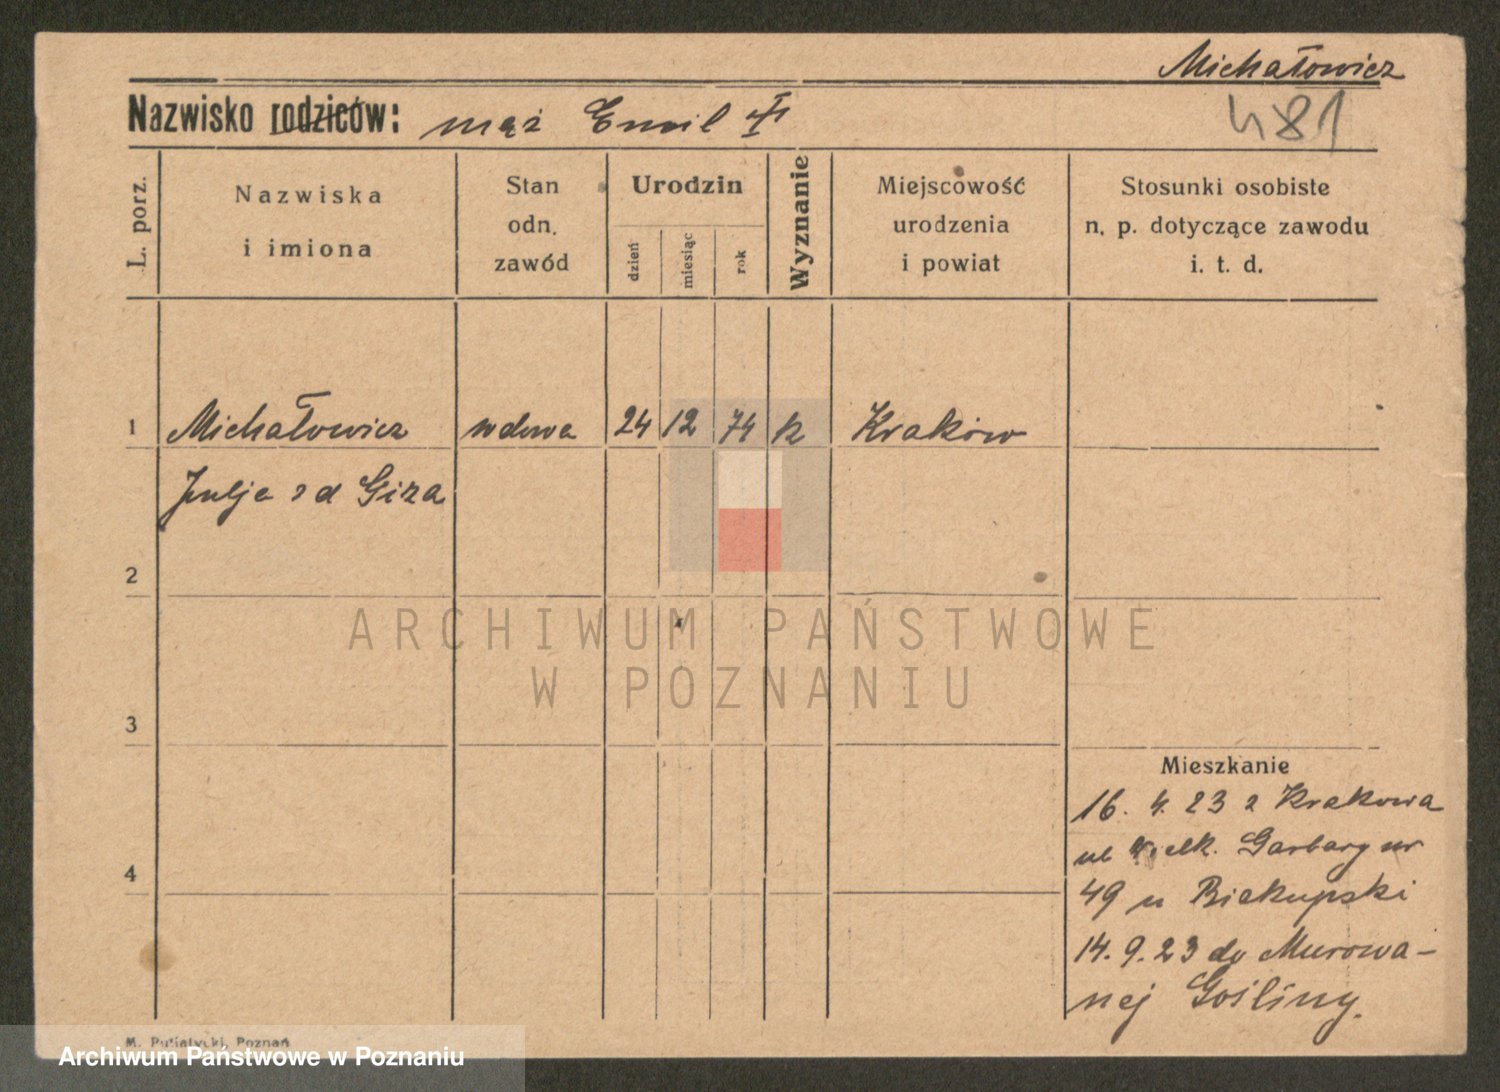 Michałowicz
481
Nazwisko rodziców: mąż Emil
L. porz.
Nazwiska
i imiona
Stan
odn.
zawód
Urodzin
dzień
miesiąc
rok
Wyznanie
Miejscowość
urodzenia
i powiat
Stosunki osobiste
n. p. dotyczące zawodu
i. t. d.
1 Michałowicz wdowa 24 12 74 k Kraków
Julja z d Giza
2
ARCHIWUM PAŃSTWOWE
W POZNANIU
3
Mieszkanie
16. 4. 23 z Krakowa
ul Wielk. Garbary nr
4
49 u Biskupski
14. 9. 23 do Murowa-
nej Gośliny.
M. Putiatycki, Poznań
Archiwum Państwowe w Poznaniu